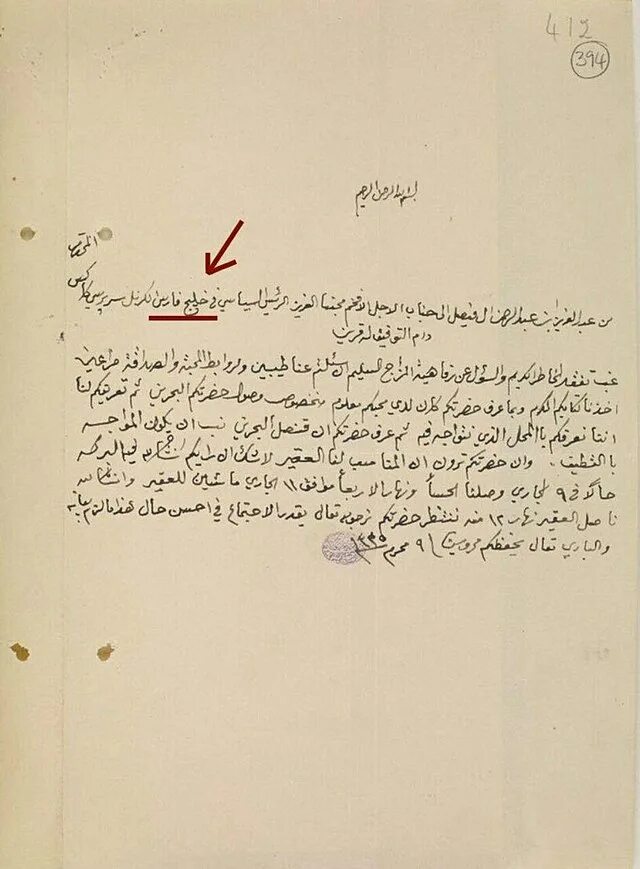 412
394
بسم الله الرحمن الرحيم
من عبد العزيز بن عبد الرحمن ال فيصل الى جناب الاجل الافخم محبنا العزيز الرئيس السياسي في خليج فارس الكرنل سر برسي كاكس المحترم
دام
غب تفقد الخاطر الكريم والسؤل عن رفاهية المزاج السليم ان سئلتم عنا طيبين ولروابط المحبة والصداقة مراعين
اخذنا كتابكم المكرم وبما عرف حضرتكم كان لدى محبكم معلوم مخصوص وصول حضرتكم البحرين ثم تعريفكم لنا
اننا نعرفكم بالمحل الذي نتواجه فيه ثم عرف حضرتكم ان قنصل البحرين ان يكون المواجه
بالقطيف. وان حضرتكم ترون ان المناسب لنا العقير لاشك ان رايكم فيه البركه
حالا في ٩ الجاري وصلنا الحسا ونهار الاربعا موافق ١١ الجاري ماشين للعقير وانشالله
ناصل العقير نهار ١٢ منه ننتظر حضرتكم نرجو الله تعالى يقدر الاجتماع في احسن حال هذا ما لزم بيانه
والباري تعالى يحفظكم محروسين ٩ محرم ١٣٣٥